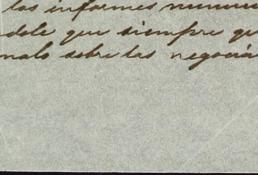 los informes
dole que siempre qu
nalo sobre las negocia